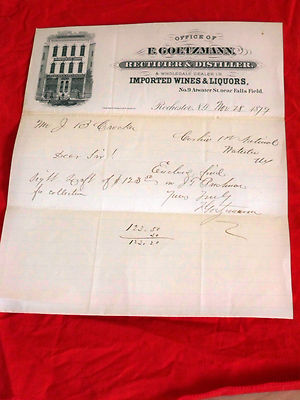 OFFICE OF
E. GOETZMANN,
RECTIFIER & DISTILLER,
& WHOLESALE DEALER IN
IMPORTED WINES & LIQUORS,
No. 9 Atwater St. near Falls Field.
Rochester, N.Y. Nov 28 1877
Mr J B
Cashier 1st National
Dear Sir!
Enclosed find
Sight Draft of $123.50 on J G
for collection
Yours Truly
E Goetzmann
123.50